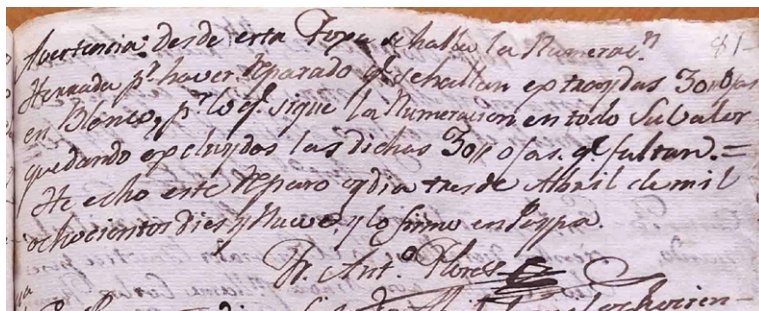 Avertencia: desde esta Foxa se halla la Numerac.n
81-
Herrada p.r haver reparado q.e se hallan extraydas 30 ojas
en Blanco, p.r lo q.e sigue la Numeracion en todo Su valor
quedando excluydas las dichas 30 ojas. q.e faltan. =
He echo este reparo oy dia tres de Abril de mil
ochocientos dies y Nueve, y lo firmo en Paypa.
Fr. Ant.o Flores